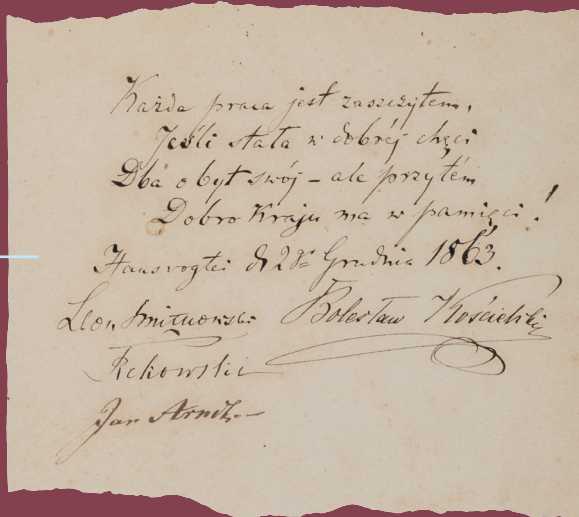 Każda praca jest zaszczytem,
Jeśli stała w dobréj chęci
Dba o byt swój – ale przytém
Dobro Kraju ma w pamięci!
d 28 Grudnia 1863.
Leon Bolesław Kościelski
Rekowski
Jan Arndt